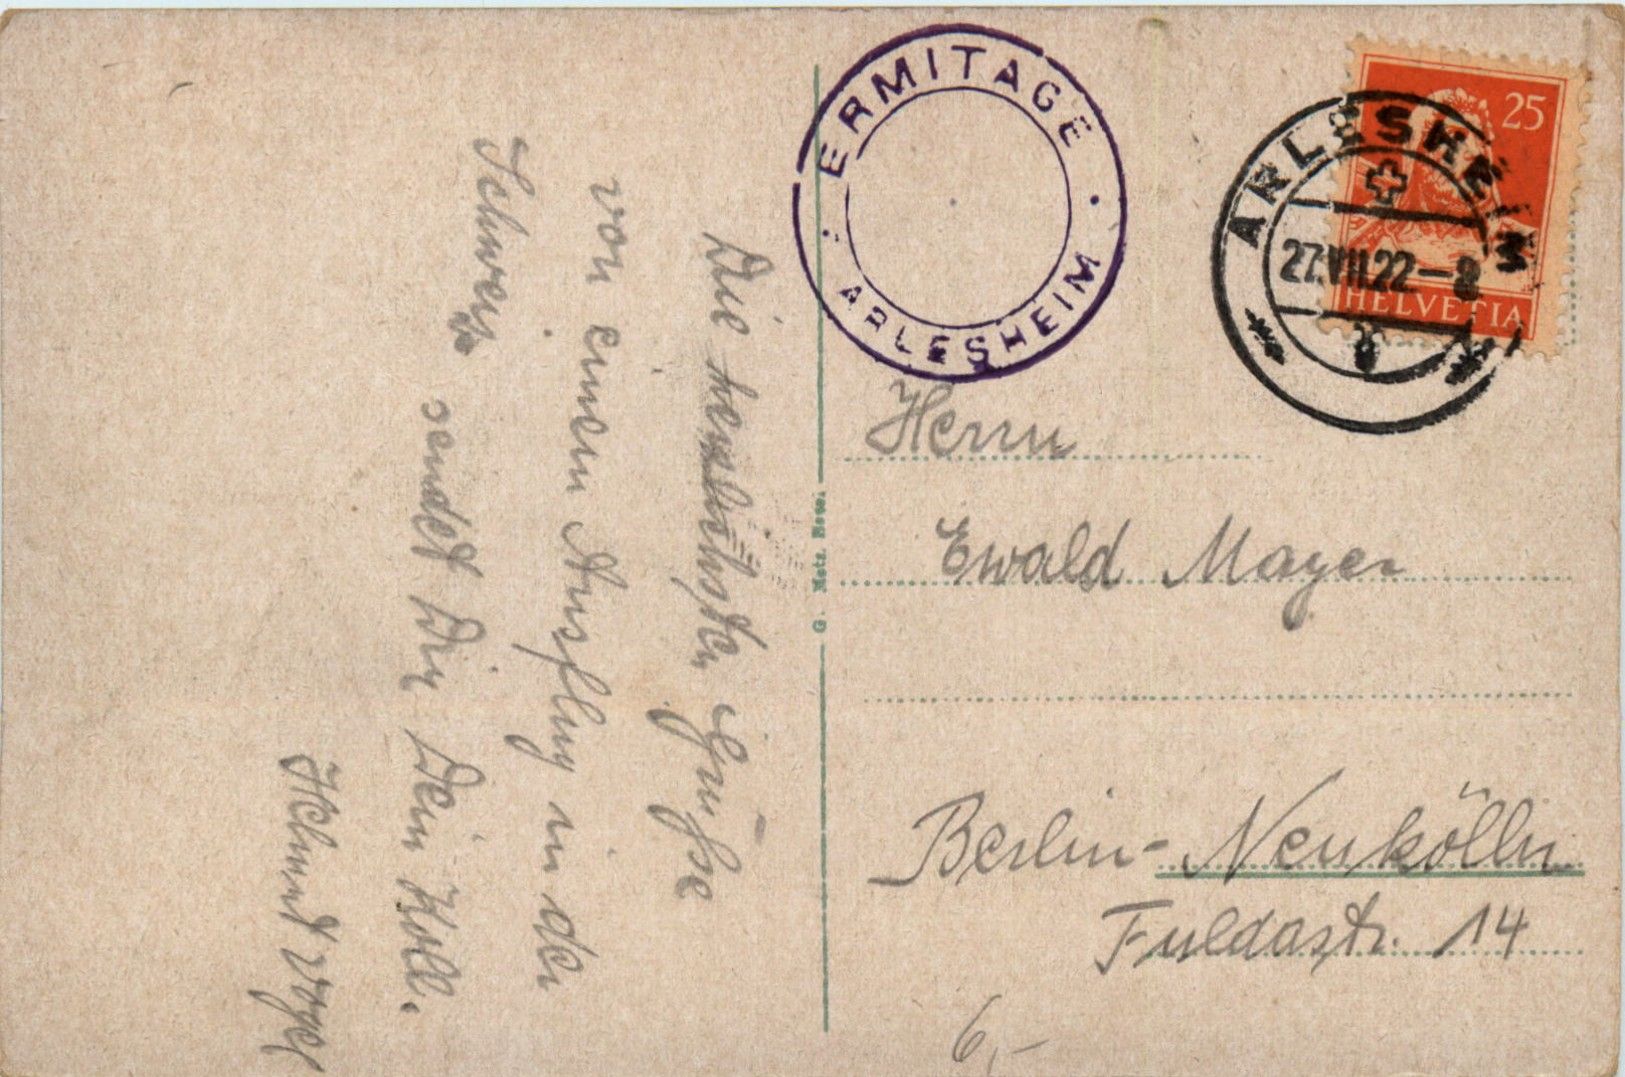 Die herzlichsten Grüsse
von einem Ausflug in der
Schweiz
sendet Dir Dein Koll.
Helmut Vogel
G. Metz, Basel
ERMITAGE
ARLESHEIM
ARLESHEIM
27.VII.22-8
25
HELVETIA
Herrn
Ewald Mayer
Berlin-Neukölln
Fuldastr. 14
6,-